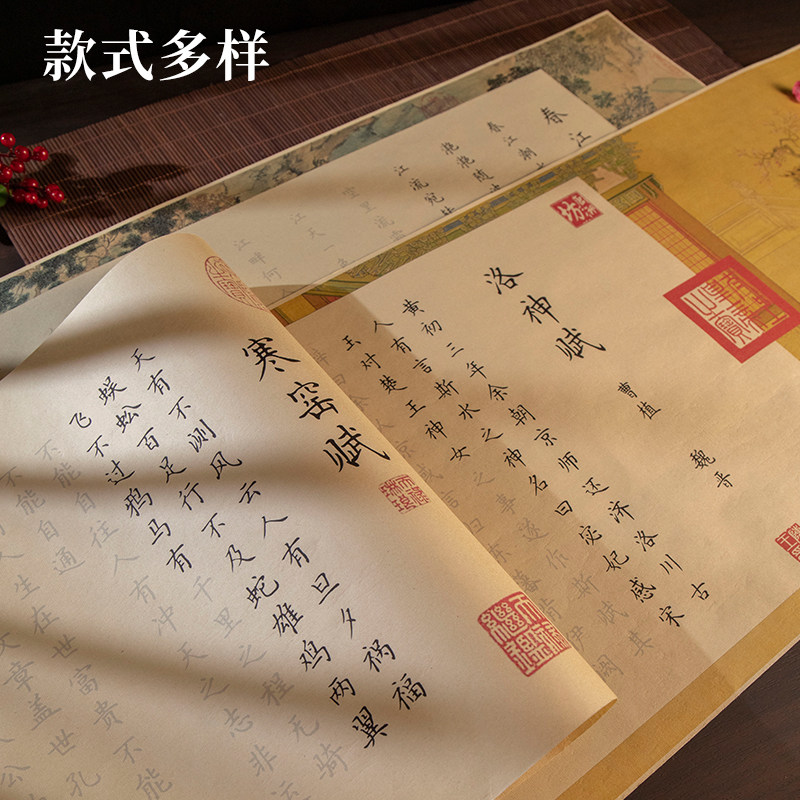 款式多样
春江
春江潮
滟滟随
江流宛
空里流
江天一
江畔何
洛神赋
魏晋
曹植
黄初三年余朝京师还济洛川古
人有言斯水之神名曰宓妃感宋
玉对楚王神女之事遂作斯赋其
寒窑赋
天有不测风云人有旦夕祸福
蜈蚣百足行不及蛇雄鸡两翼
飞不过鸦马有千里之程无骑
不能自往人有冲天之志非运
不能自通
生在世富贵不能
文章盖世孔